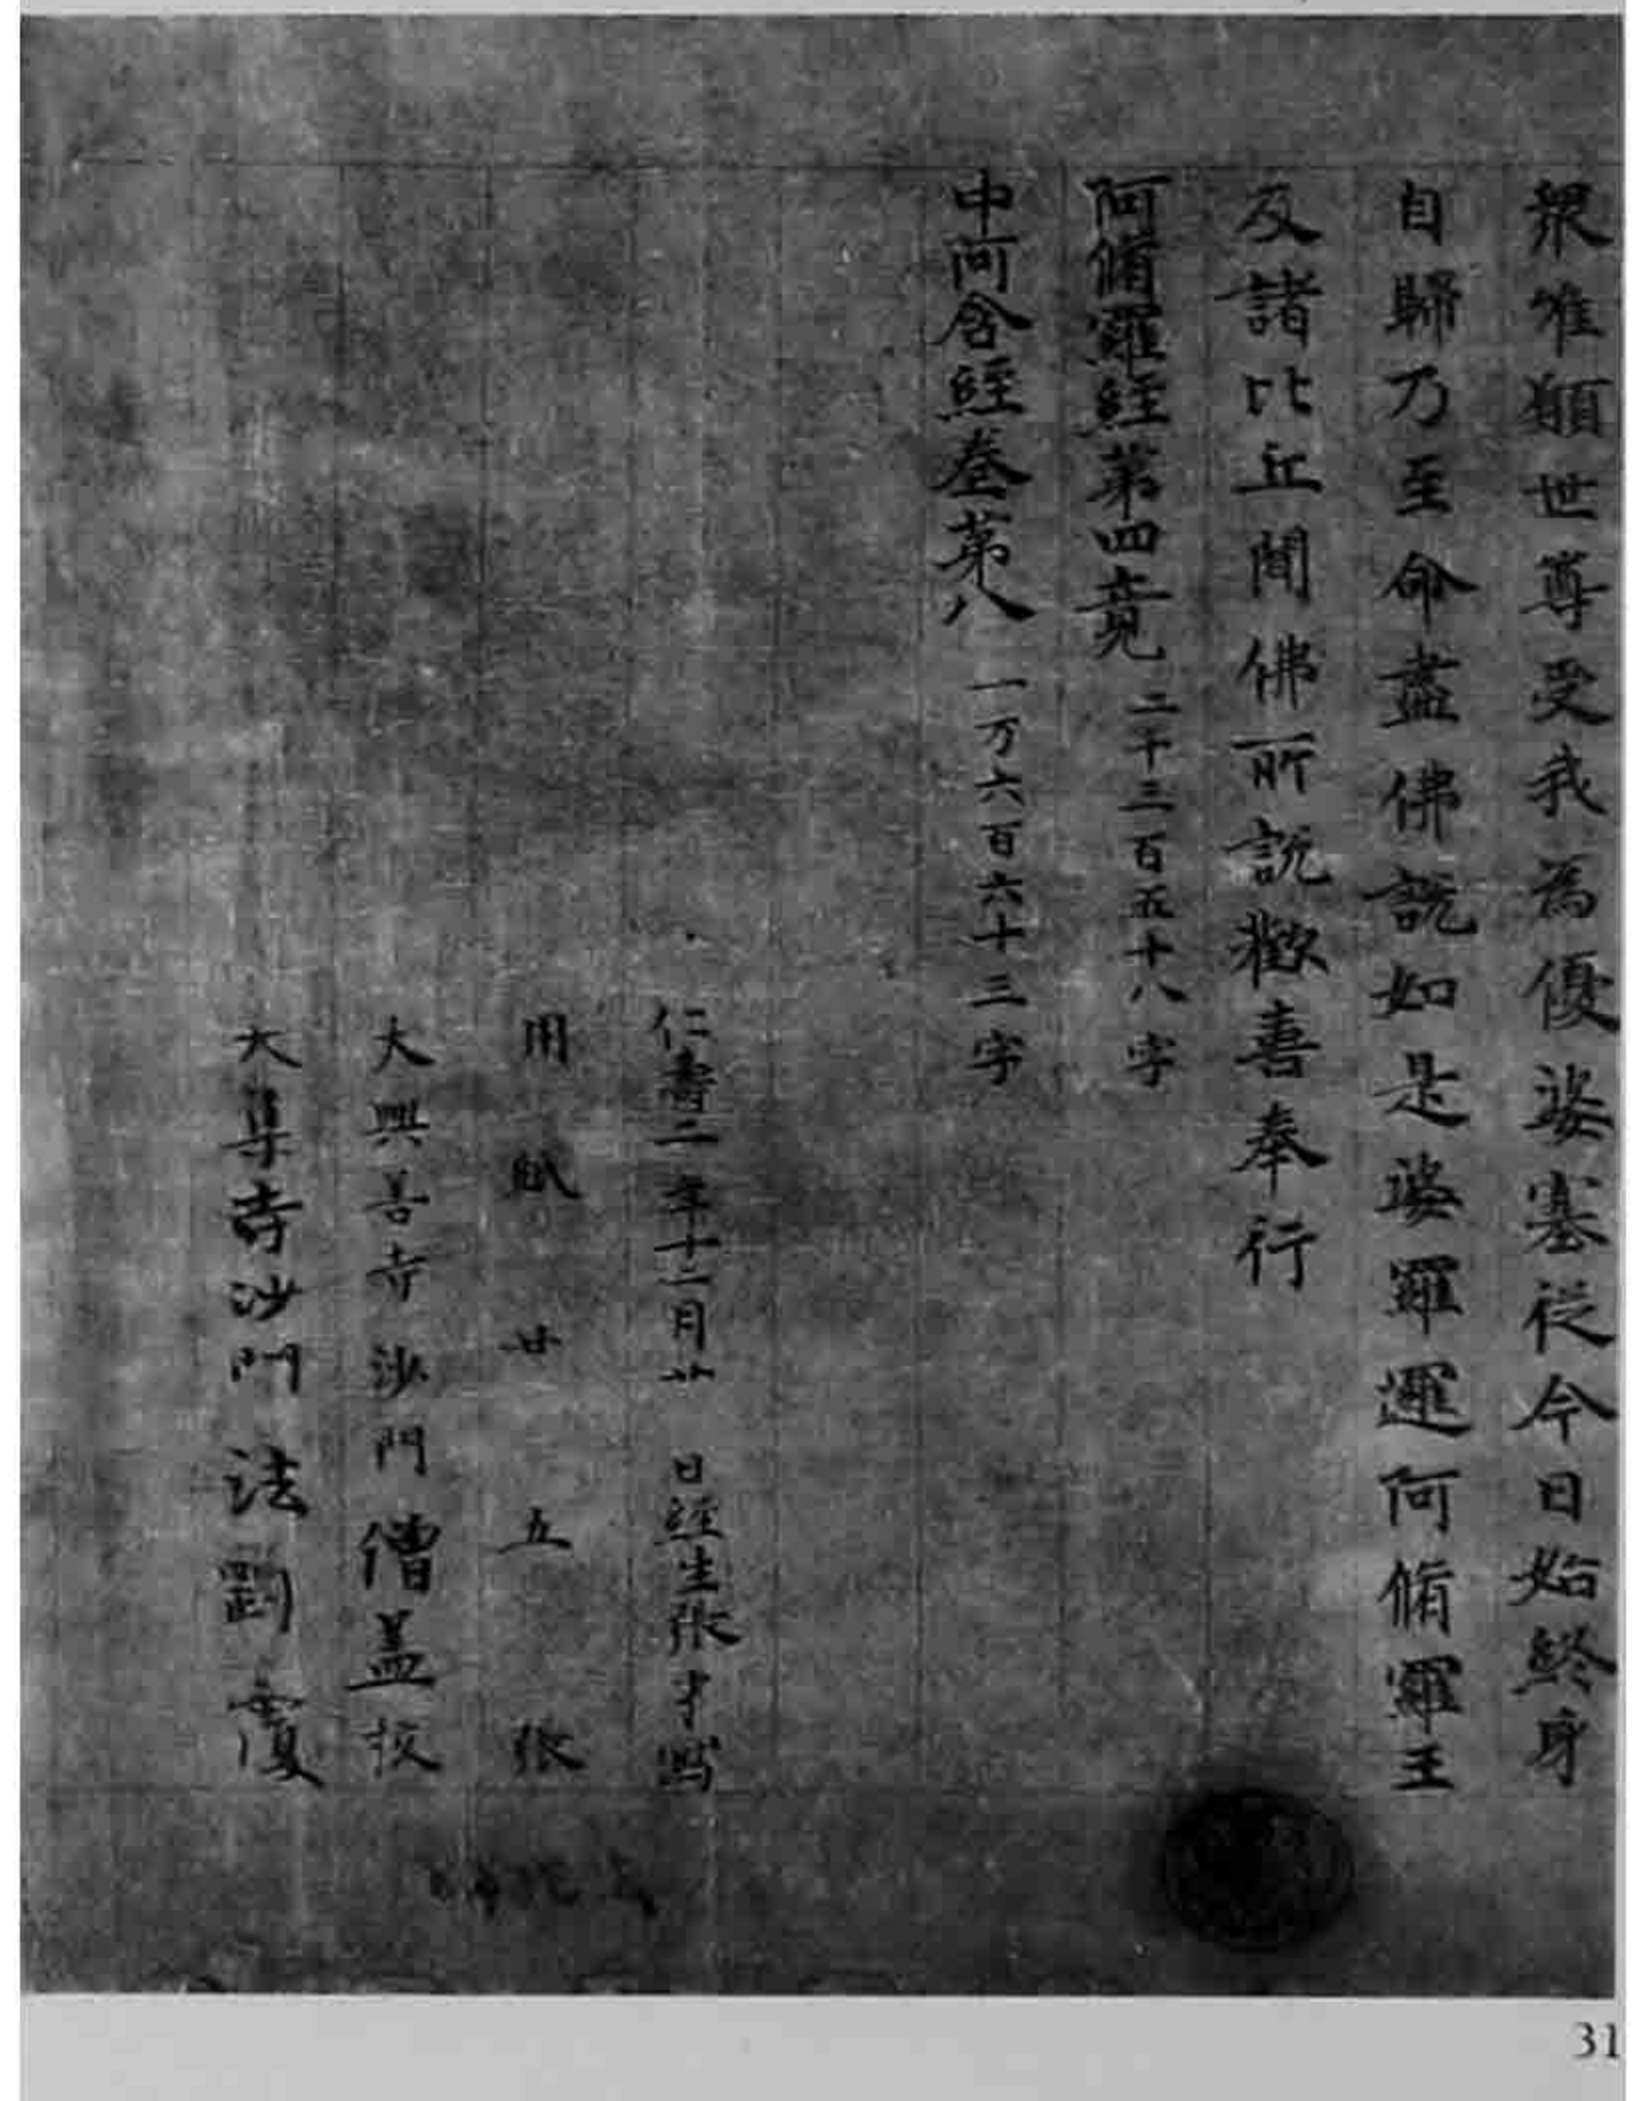 衆唯願世尊受我為優婆塞従今日始終身
自歸乃至命盡佛說如是婆羅邏阿脩羅王
及諸比丘聞佛所說歡喜奉行
阿脩羅經第四竟 二千三百五十八字
中阿含經卷第八 一万六百六十三字
仁壽二年十二月廿 日經生張才寫
用紙廿五張
大興善寺沙門僧盖挍
大集寺沙門法剛覆
31